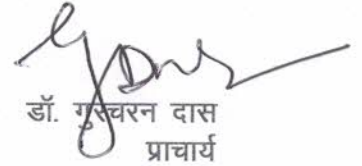 डॉ. गुरुचरन दास
प्राचार्य